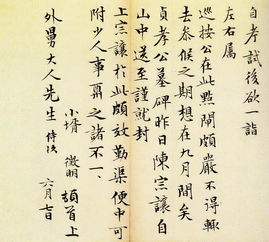 自考試後欲一詣
左右属
巡按公在此點閘頗嚴不得輒
去參候之期想在九月間矣
貞孝公墓碑昨日陳宗讓自
山中送至謹就封
上宗讓於此頗效勤渠便中可
附少人事帚之諸不一一
小壻徵明頓首上
外舅大人先生侍次
六月七日